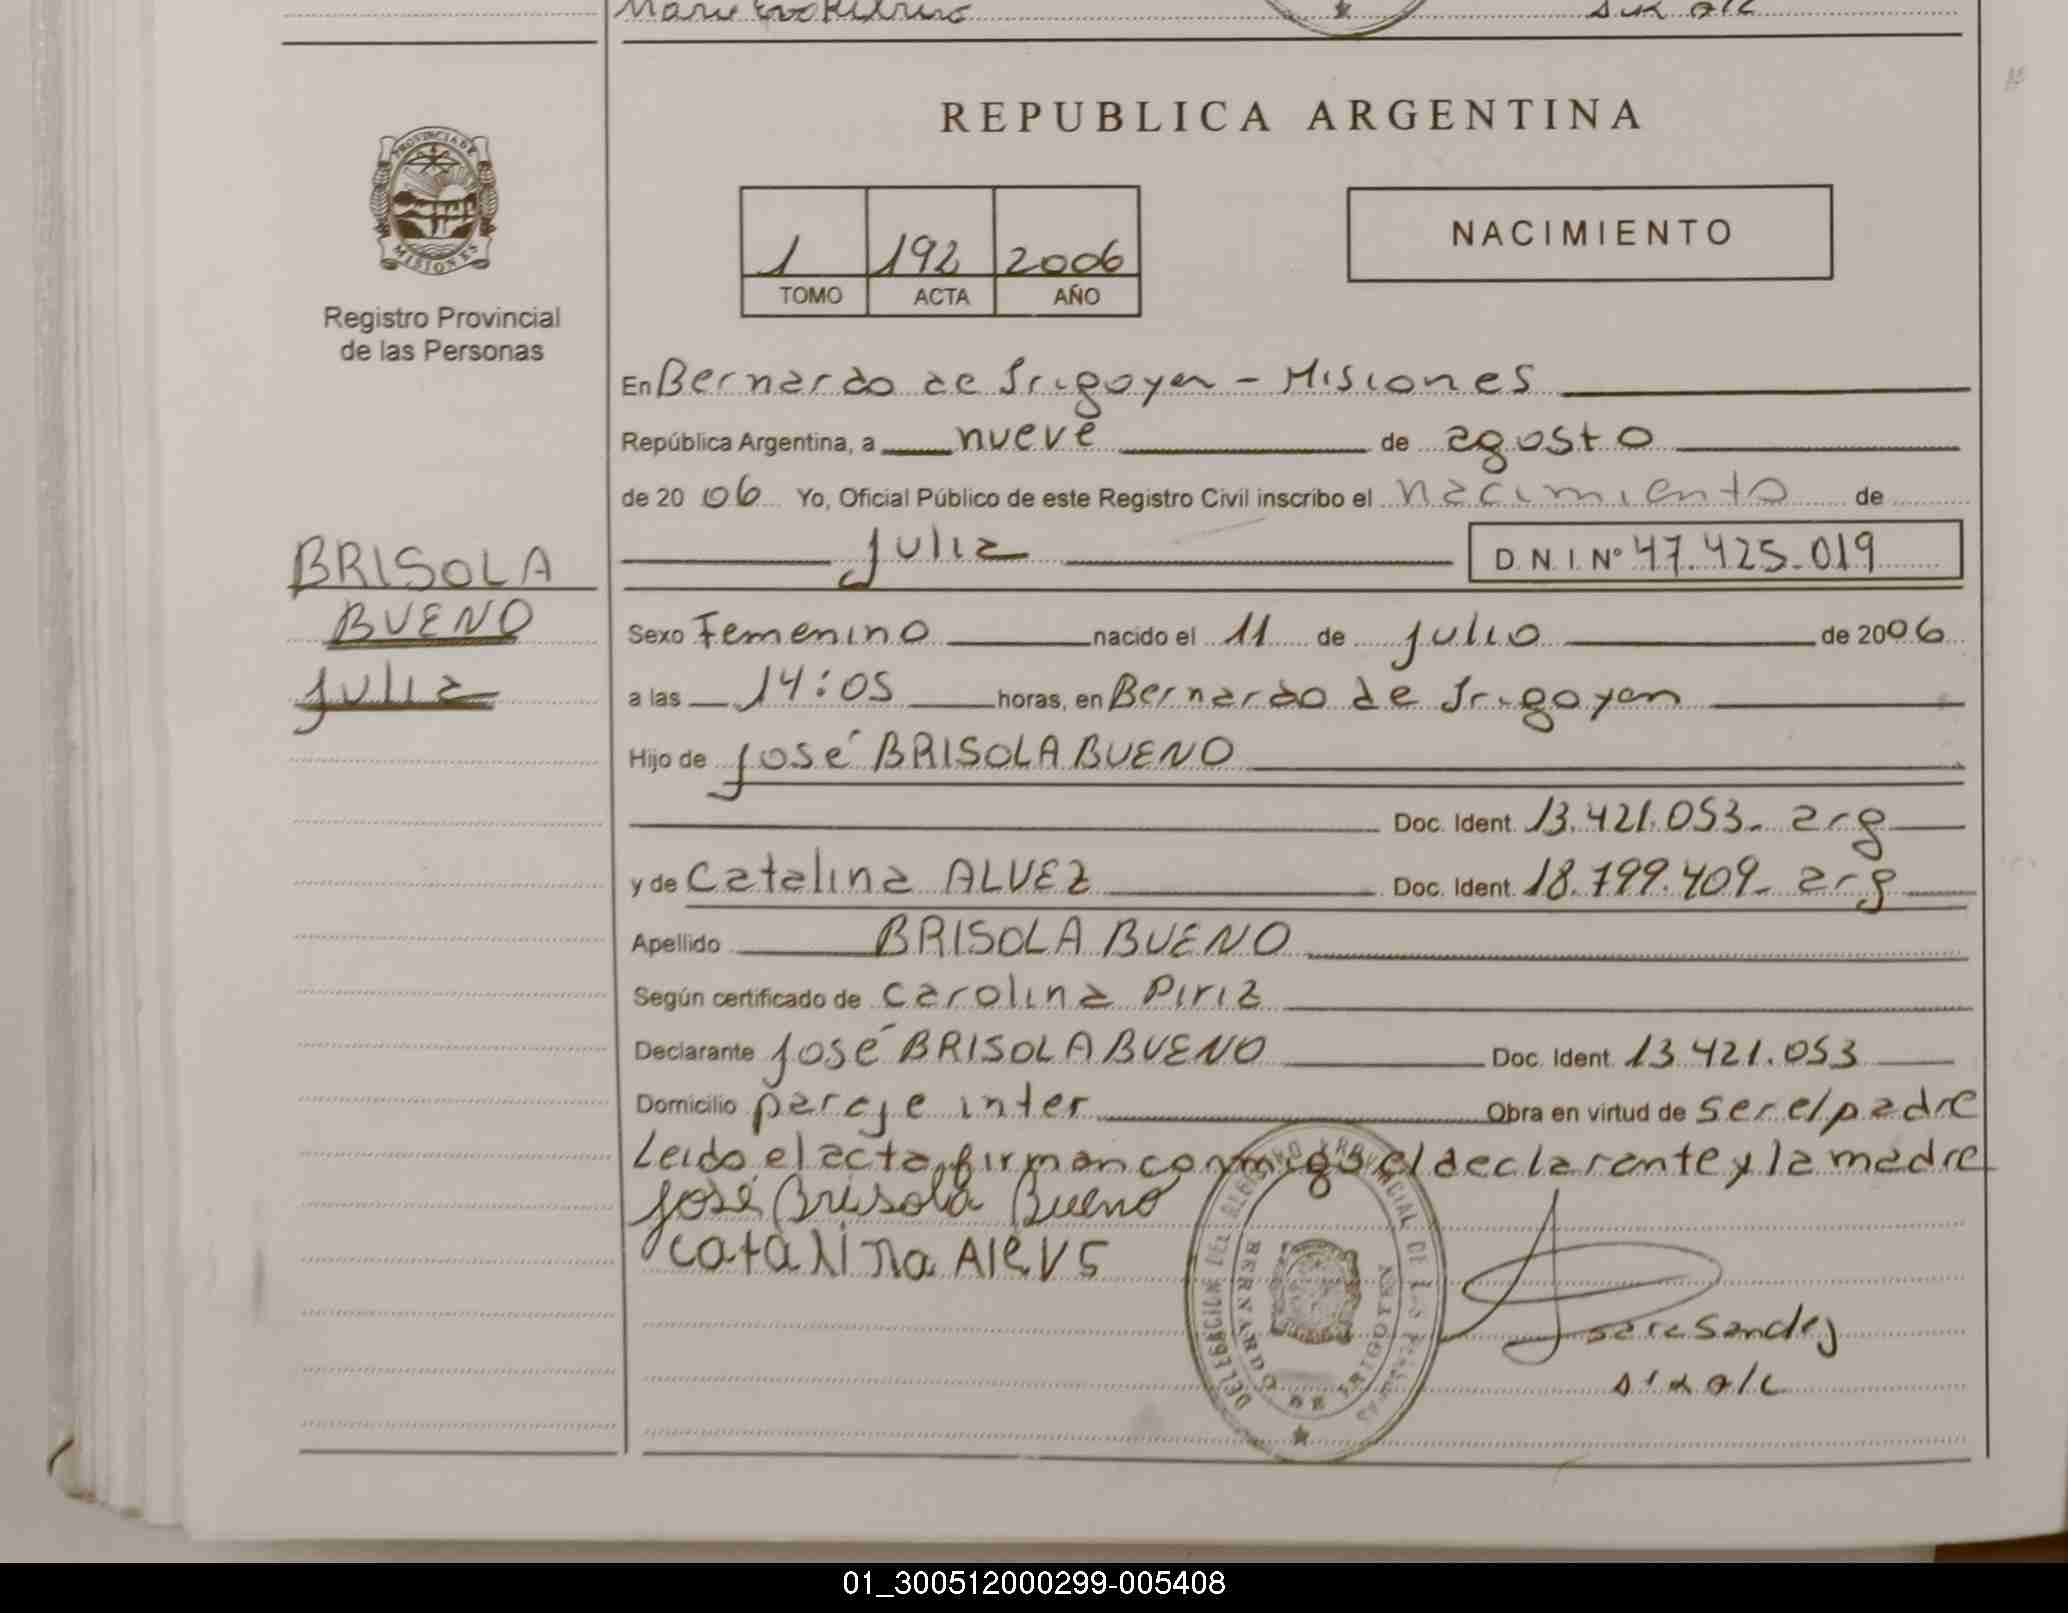 REPUBLICA ARGENTINA
PROVINCIA DE
MISIONES
Registro Provincial
de las Personas
1 192 2006
TOMO ACTA AÑO
NACIMIENTO
En Bernardo de Irigoyen - Misiones
República Argentina, a nueve de agosto
de 2006 Yo, Oficial Público de este Registro Civil inscribo el nacimiento de
Julia D.N.I. Nº 47.425.019
BRISOLA
BUENO
Julia
Sexo Femenino nacido el 11 de Julio de 2006
a las 14:05 horas, en Bernardo de Irigoyen
Hijo de José BRISOLA BUENO
Doc. Ident. 13.421.053- arg
y de Catalina ALVEZ Doc. Ident. 18.799.409- arg
Apellido BRISOLA BUENO
Según certificado de Carolina Piriz
Declarante José BRISOLA BUENO Doc. Ident. 13.421.053
Domicilio paraje inter Obra en virtud de ser el padre
Leido el acta, firman conmigo el declarante y la madre
José Brisola Bueno
Catalina
DELEGACION DEL REGISTRO PROVINCIAL DE LAS PERSONAS
BERNARDO DE IRIGOYEN
01_300512000299-005408